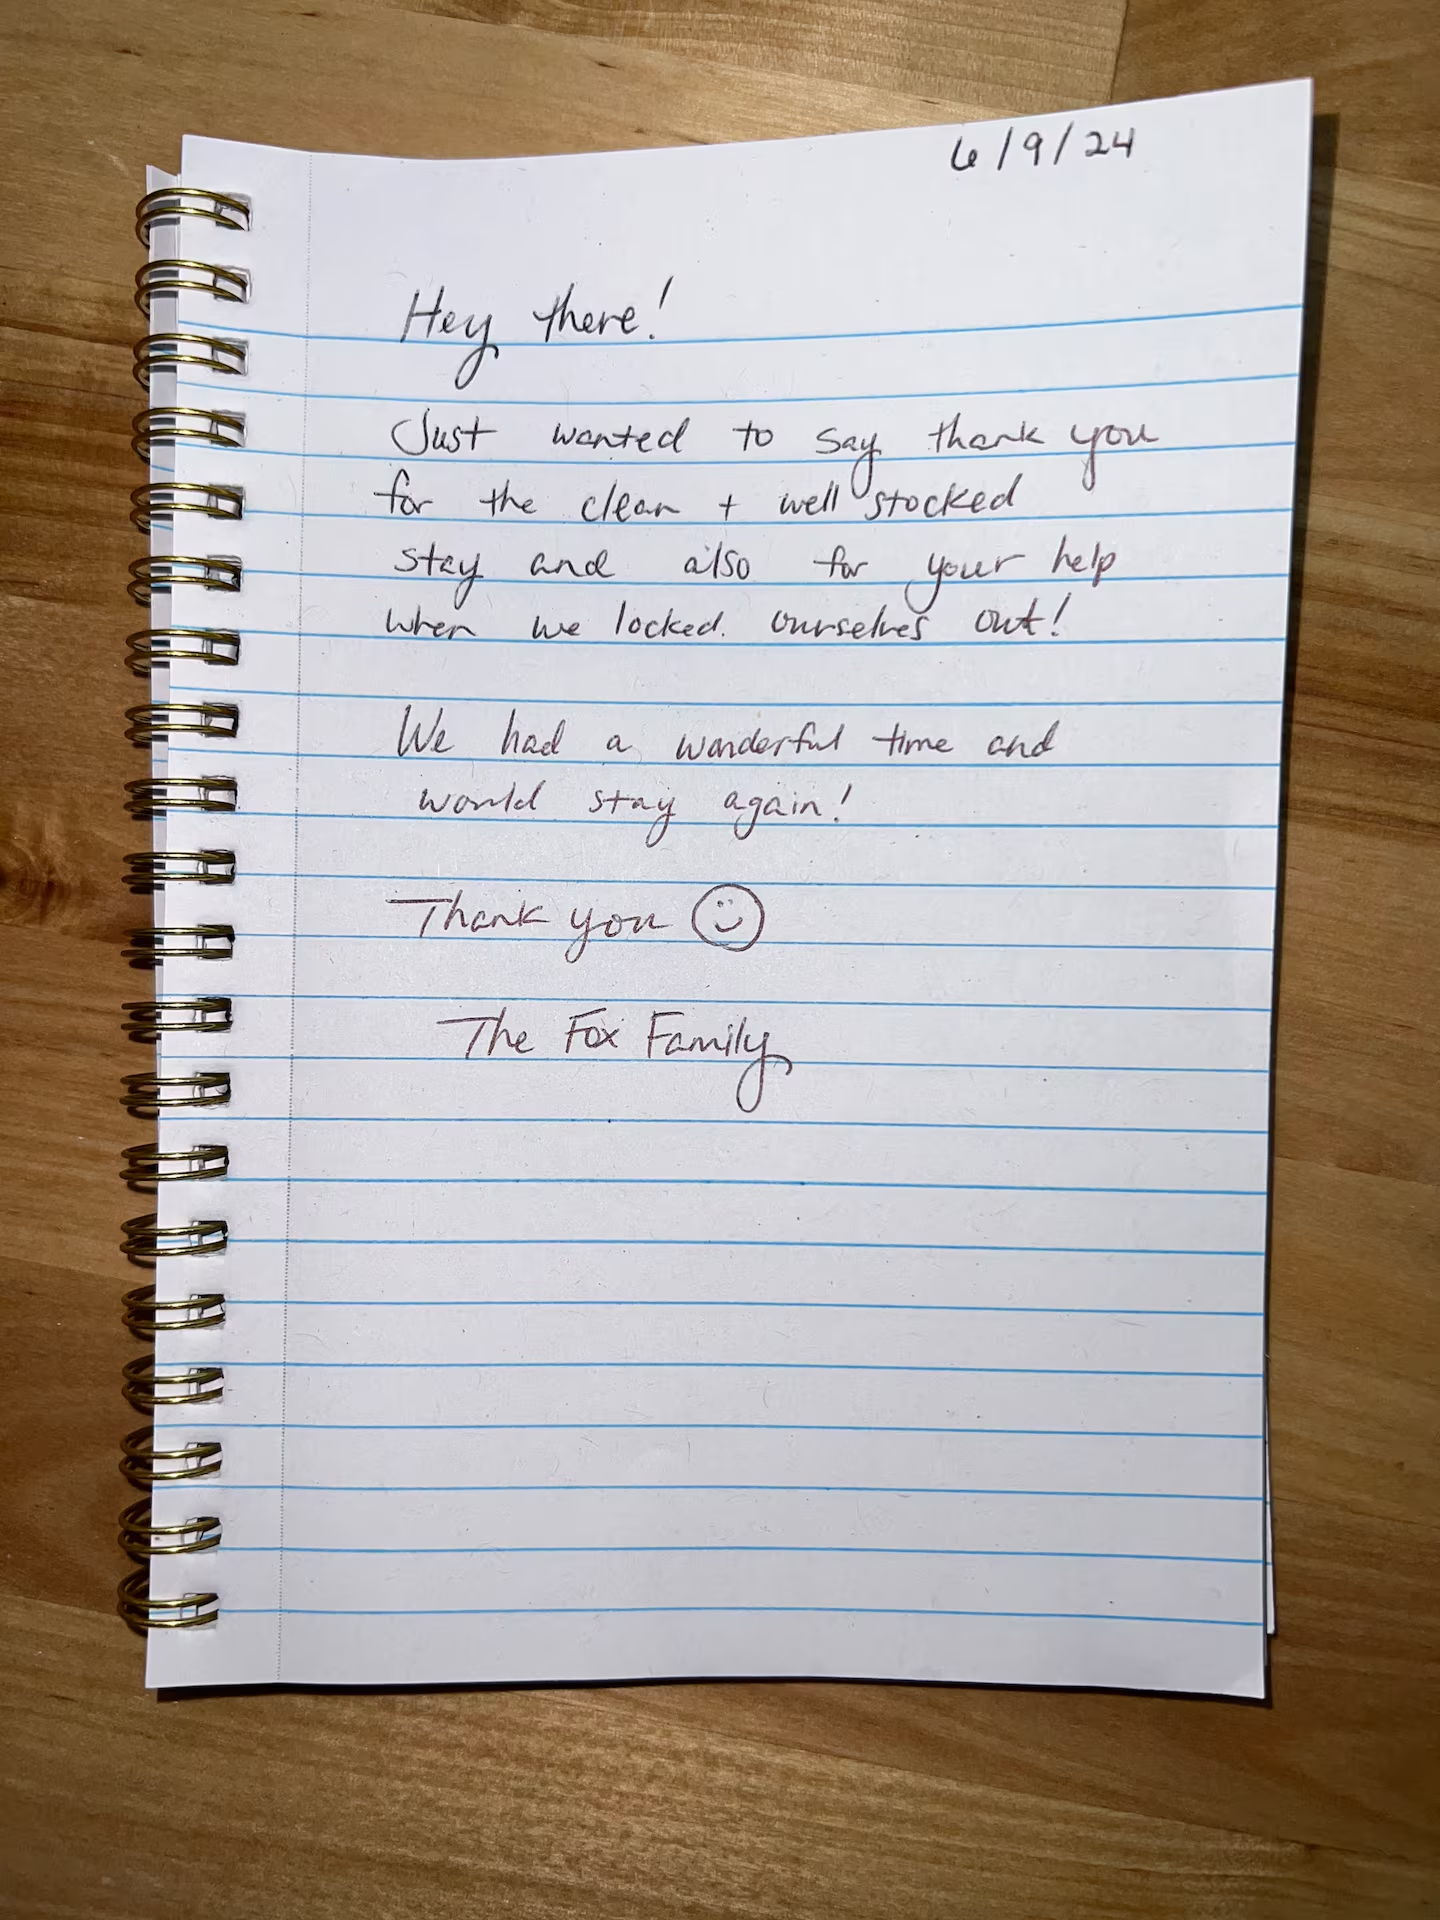 6/9/24
Hey there!
Just wanted to say thank you
for the clean + well stocked
stay and also for your help
when we locked ourselves out!
We had a wonderful time and
would stay again!
Thank you ☺
The Fox Family